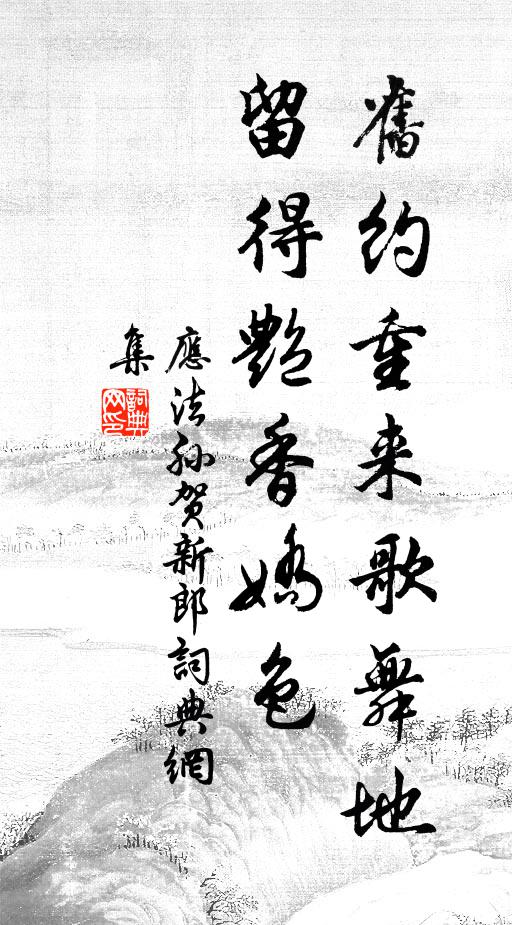 舊約重来歌舞地
留得艷香嬌色
應法孫賀新郎詞典網
集
詞典
网印